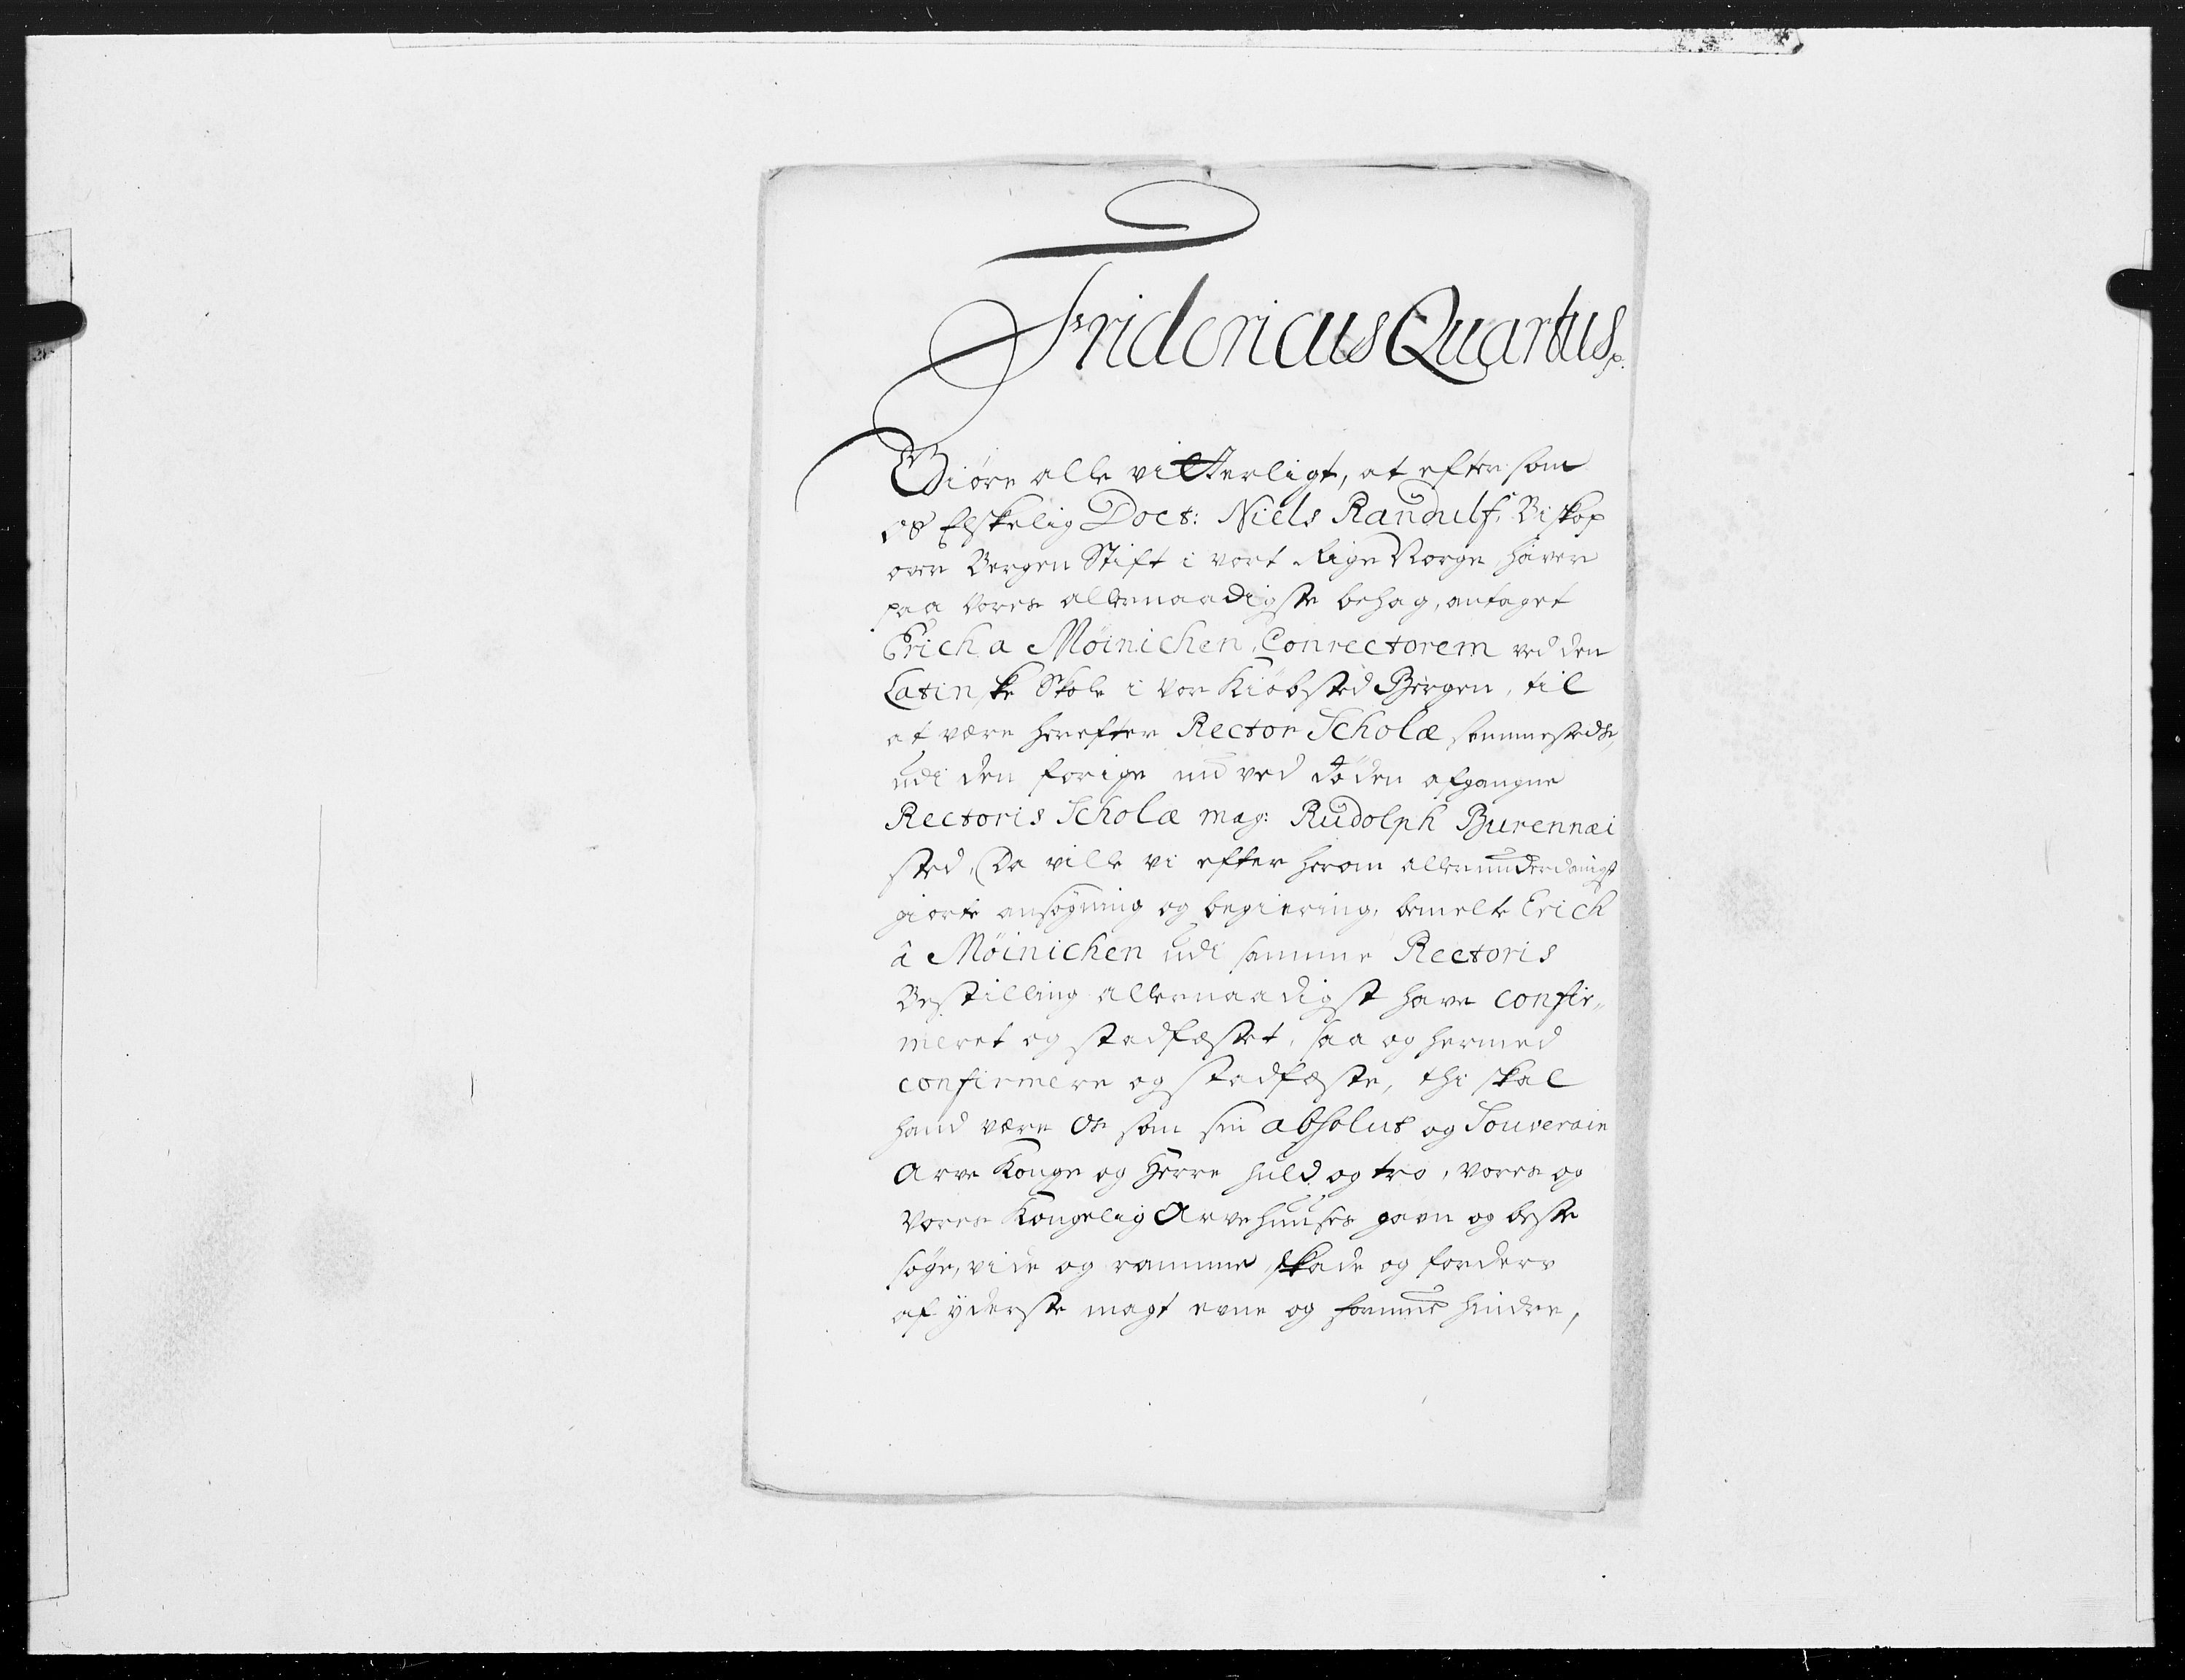 Fridericus Quartus p.
Giöre alle vitterligt, at eftersom
os Elskelig Doct: Niels Randulf, Biskop
over Bergen Stift i vort Rige Norge haver
paa Vores allernaadigste behag, antaget
Erich a Möinichen, Conrectorem ved den
Latinske Skole i Vor Kiöbsted Bergen, til
at være herefter Rector Scholæ sammestedz,
udi den forige nu ved döden afgangne
Rectoris Scholæ mag: Rudolph Burennæi
sted, Da ville vi efter herom allerunderdanigst
giorte ansøgning og begiering, bemelte Erich
â Möinichen udi samme Rectoris
Bestilling allernaadigst have confir„
meret og stadfæstet, saa og hermed
confirmere og stadfæste, thi skal
hand være Os som sin absolut og Souverain
Arve Konge og Herre huld og tro, vores og
Vores Kongelig Arvehuuses gavn og beste
søge, vide og ramme, skade og forderv
af yderste magt evne og formue hindre,